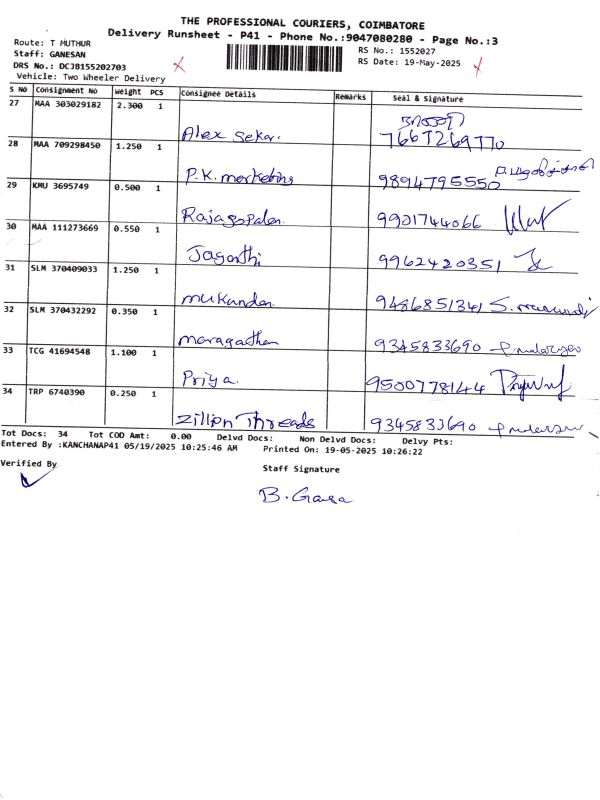 THE PROFESSIONAL COURIERS, COIMBATORE
Delivery Runsheet - P41 - Phone No.:9047080280 - Page No.:3
Route: T MUTHUR
Staff: GANESAN
DRS No.: DCJB155202703
Vehicle: Two Wheeler Delivery
RS No.: 1552027
RS Date: 19-May-2025
S NO Consignment No Weight PCS Consignee Details Remarks Seal & Signature
27 MAA 303029182 2.300 1
Alex Sekar. 7667269770
28 MAA 709298450 1.250 1
P.K. marketing 9894795550
29 KMU 3695749 0.500 1
Rajagopalan. 9901744066
30 MAA 111273669 0.550 1
Jaganthi 9962420351
31 SLM 370409033 1.250 1
mukandan 9486851341
32 SLM 370432292 0.350 1
maragathan 9345833690
33 TCG 41694548 1.100 1
Priya. 9500778144
34 TRP 6740390 0.250 1
Zillion Threads 9345833690
Tot Docs: 34 Tot COD Amt: 0.00 Delvd Docs: Non Delvd Docs: Delvy Pts:
Entered By :KANCHANAP41 05/19/2025 10:25:46 AM Printed On: 19-05-2025 10:26:22
Verified By
Staff Signature